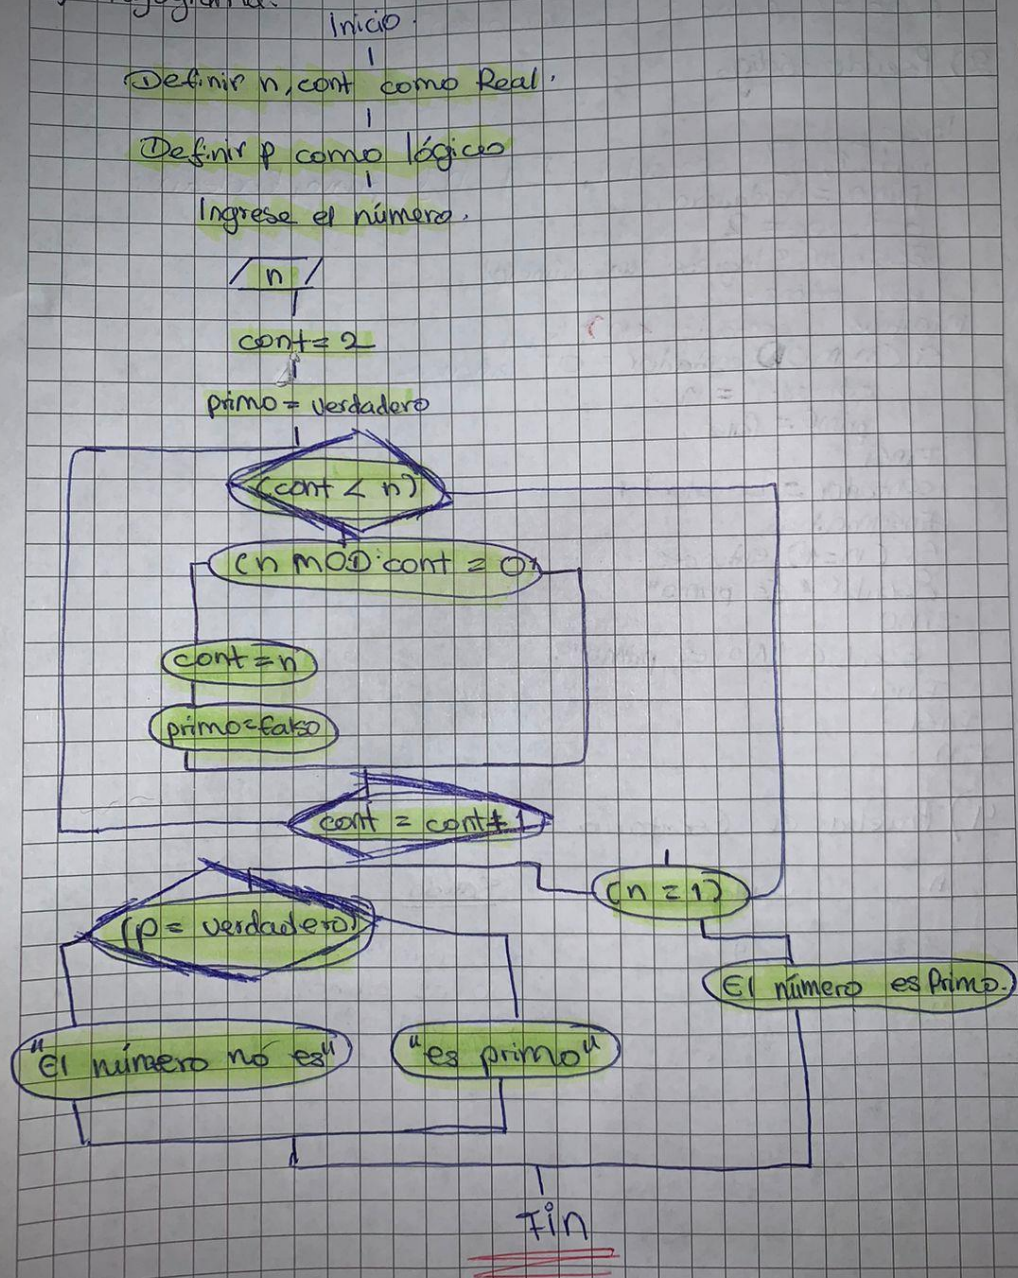 Inicio.
Definir n, cont como Real.
Definir p como lógico
Ingrese el número.
n
cont = 2
primo = verdadero
(cont < n)
(n MOD cont = 0)
cont = n
primo = falso
cont = cont + 1
(n = 1)
(p = verdadero)
El número es Primo.
"El número no es"
"es primo"
Fin